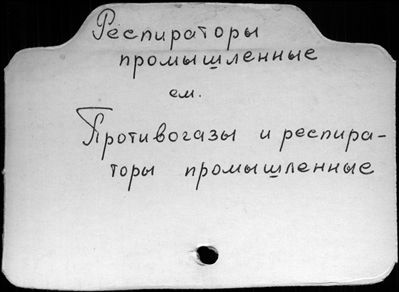 Респираторы
промышленные
см.
Противогазы и респира-
торы промышленные